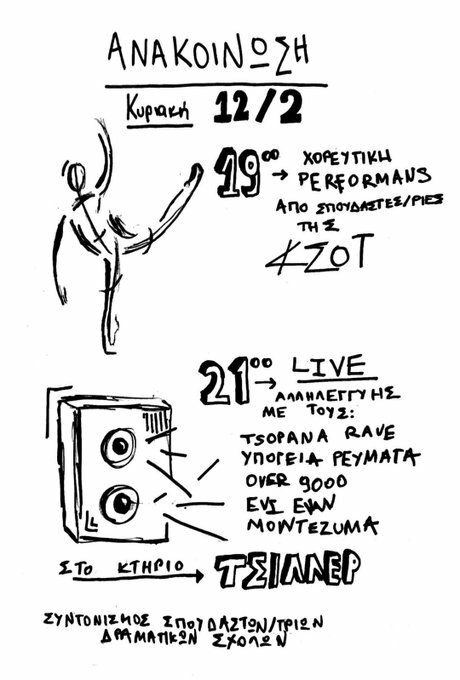 ΑΝΑΚΟΙΝΩΣΗ
Κυριακή 12/2
19⁰⁰ → ΧΟΡΕΥΤΙΚΗ
PERFORMANS
ΑΠΟ ΣΠΟΥΔΑΣΤΕΣ/ΡΙΕΣ
ΤΗΣ
ΚΣΟΤ
21⁰⁰ → LIVE
ΑΛΛΗΛΕΓΓΥΗΣ
ΜΕ ΤΟΥΣ:
ΤSΟΡΑΝΑ RAVE
ΥΠΟΓΕΙΑ ΡΕΥΜΑΤΑ
OVER 9000
ΕΝΙ ΕΥΑΝ
ΜΟΝΤΕΖUΜΑ
ΣΤΟ ΚΤΗΡΙΟ → ΤΣΙΛΛΕΡ
ΣΥΝΤΟΝΙΣΜΟΣ ΣΠΟΥΔΑΣΤΩΝ/ΤΡΙΩΝ
ΔΡΑΜΑΤΙΚΩΝ ΣΧΟΛΩΝ